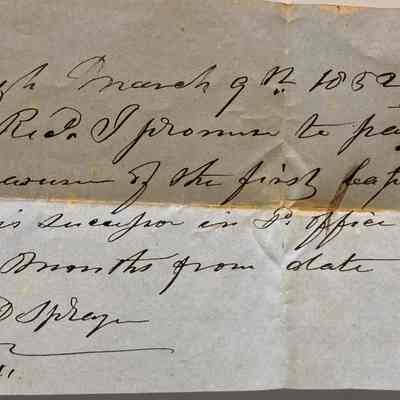 gh March 9th 1852
Recd. I promise to pay
easurer of the first Bap
is successor in sd. office
months from date
D Sprague